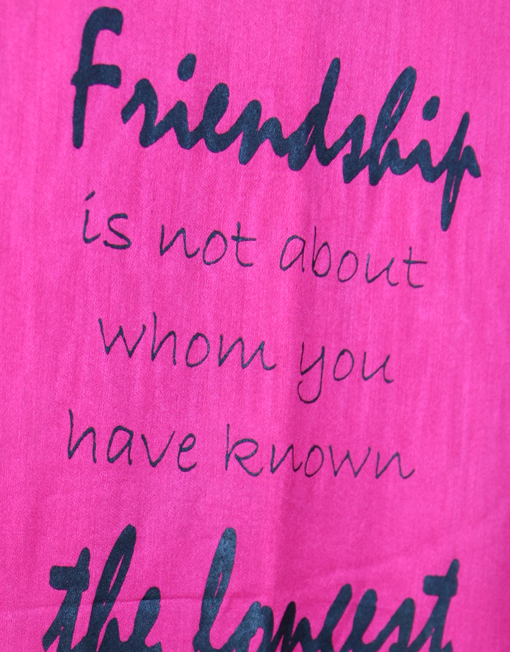 Friendship
is not about
whom you
have known
the longest